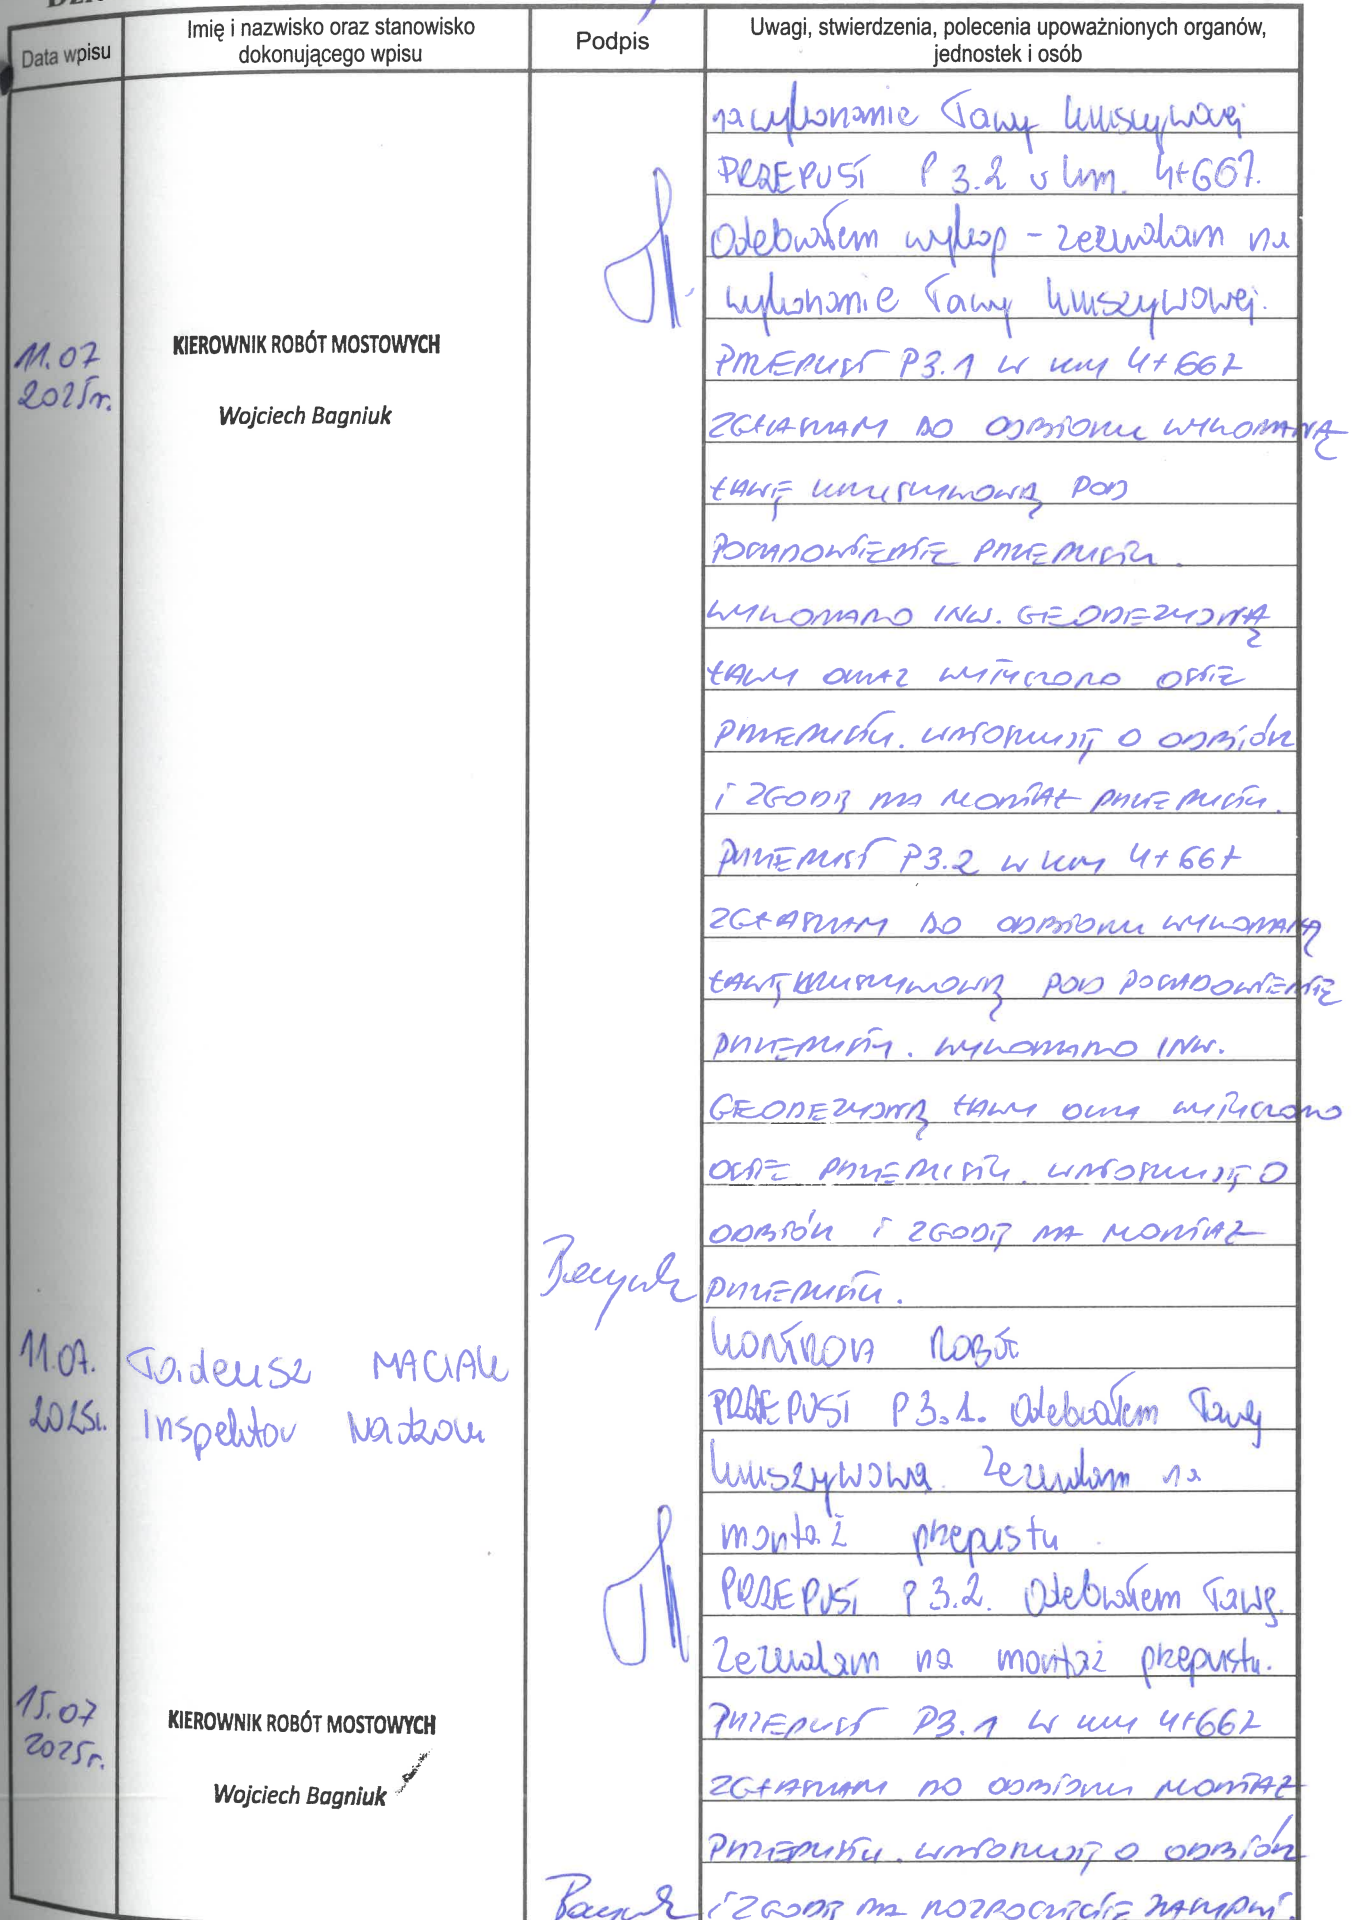 Data wpisu
Imię i nazwisko oraz stanowisko
dokonującego wpisu
Podpis
Uwagi, stwierdzenia, polecenia upoważnionych organów,
jednostek i osób
na wykonanie ławy kruszywowej
PRZEPUST P 3.2 w km. 4+667.
Odebrałem wykop - zezwalam na
wykonanie ławy kruszywowej.
11.07
2025r.
KIEROWNIK ROBÓT MOSTOWYCH
Wojciech Bagniuk
PRZEPUST P3.1 w km 4+667
ZGŁASZAM DO ODBIORU WYKONANĄ
ŁAWĘ KRUSZYWOWĄ POD
POSADOWIENIE PRZEPUSTU.
WYKONANO INW. GEODEZYJNĄ
ŁAWY ORAZ WYTYCZONO OSIE
PRZEPUSTU. WNIOSKUJĘ O ODBIÓR
I ZGODĘ NA MONTAŻ PRZEPUSTU.
PRZEPUST P3.2 w km 4+667
ZGŁASZAM DO ODBIORU WYKONANĄ
ŁAWĘ KRUSZYWOWĄ POD POSADOWIENIE
PRZEPUSTU. WYKONANO INW.
GEODEZYJNĄ ŁAWY ORAZ WYTYCZONO
OSIE PRZEPUSTU. WNIOSKUJĘ O
ODBIÓR I ZGODĘ NA MONTAŻ
PRZEPUSTU.
11.07.
2025r.
Tadeusz MACIAK
Inspektor Nadzoru
KONTROLA ROBÓT
PRZEPUST P3.1. Odebrałem ławę
kruszywową. Zezwalam na
montaż przepustu.
PRZEPUST P3.2. Odebrałem ławę.
Zezwalam na montaż przepustu.
15.07
2025r.
KIEROWNIK ROBÓT MOSTOWYCH
Wojciech Bagniuk
PRZEPUST P3.1 w km 4+667
ZGŁASZAM DO ODBIORU MONTAŻ
PRZEPUSTU. WNIOSKUJĘ O ODBIÓR
I ZGODĘ NA ROZPOCZĘCIE